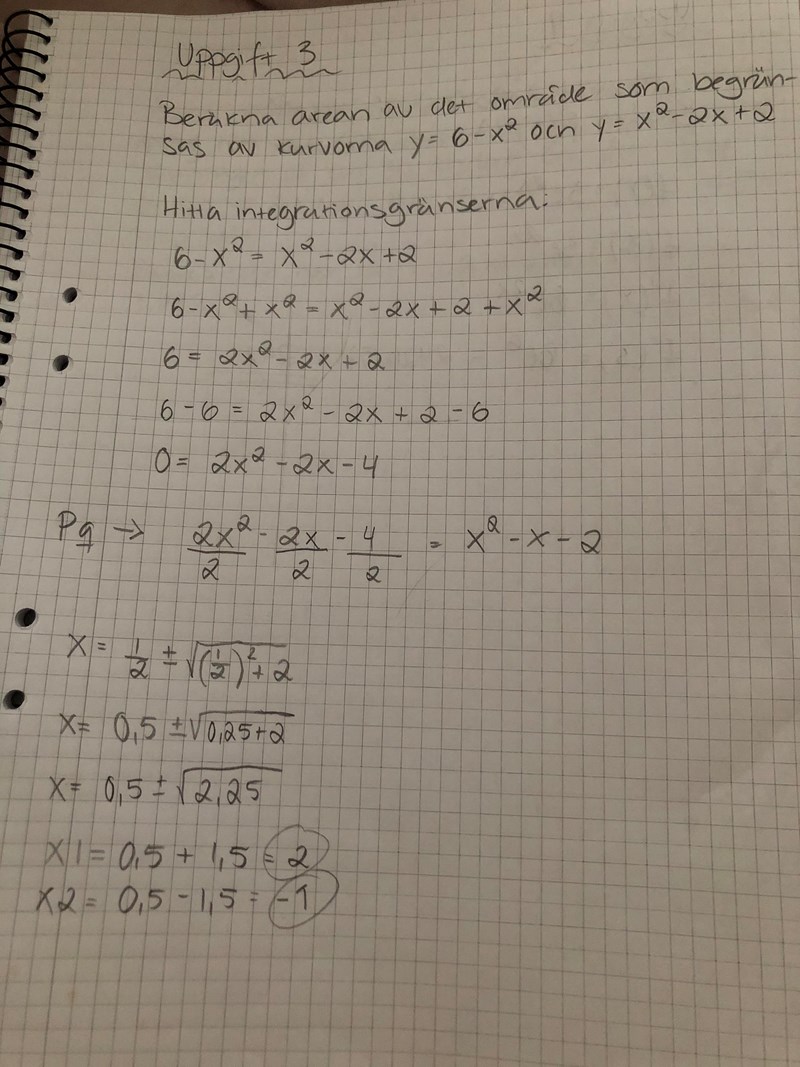 Uppgift 3
Beräkna arean av det område som begrän-
sas av kurvorna y = 6 - x² och y = x² - 2x + 2
Hitta integrationsgränserna:
6 - x² = x² - 2x + 2
6 - x² + x² = x² - 2x + 2 + x²
6 = 2x² - 2x + 2
6 - 6 = 2x² - 2x + 2 - 6
0 = 2x² - 2x - 4
Pq → 2x²/2 - 2x/2 - 4/2 = x² - x - 2
x = 1/2 ± √((1/2)² + 2)
x = 0,5 ± √(0,25 + 2)
x = 0,5 ± √(2,25)
x1 = 0,5 + 1,5 = 2
x2 = 0,5 - 1,5 = -1